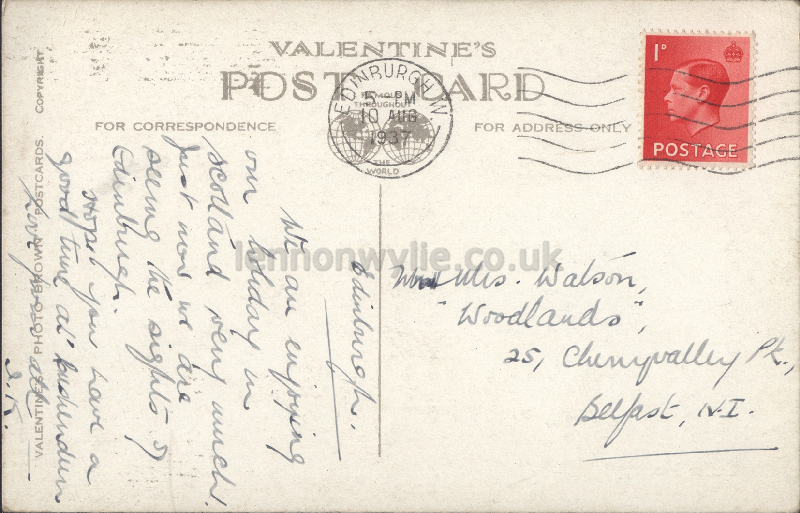 VALENTINE'S
POST CARD
FAMOUS THROUGHOUT
THE WORLD
FOR CORRESPONDENCE
FOR ADDRESS ONLY
EDINBURGH W.
5- PM
10 AUG
1937
1D
POSTAGE
VALENTINE'S PHOTO-BROWN POSTCARDS. COPYRIGHT
Edinburgh.
We are enjoying
our holiday in
Scotland very much.
Just now we are
seeing the sights of
Edinburgh.
Hope you have a
good time at
J.K.
Mrs. Watson,
"Woodlands",
25, Cherryvalley Pk.,
Belfast, N.I.
lennonwylie.co.uk